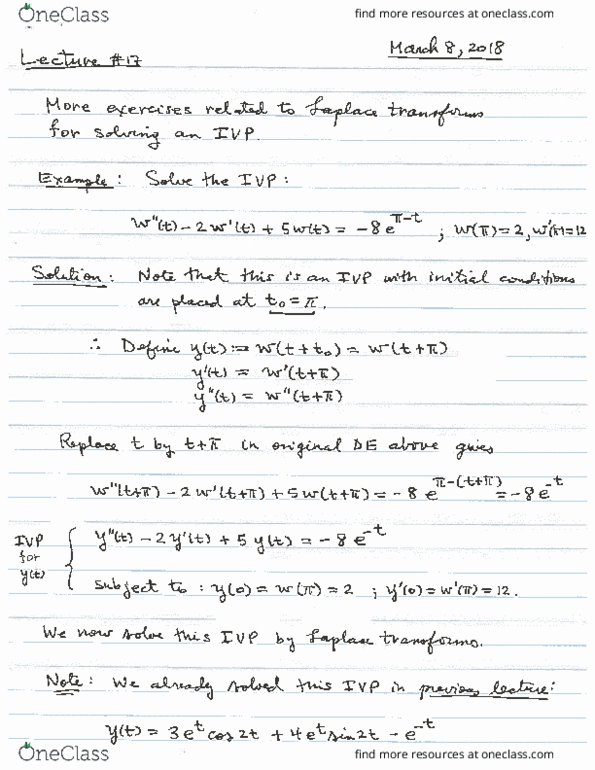 OneClass
find more resources at oneclass.com
March 8, 2018
Lecture #17
More exercises related to Laplace transforms
for solving an IVP.
Example: Solve the IVP:
w"(t) - 2w'(t) + 5w(t) = -8e^{π-t} ; w(π)=2, w'(π)=12
Solution: Note that this is an IVP with initial conditions
are placed at t₀ = π.
∴ Define y(t) := w(t+t₀) = w(t+π)
y'(t) = w'(t+π)
y"(t) = w"(t+π)
Replace t by t+π in original DE above gives
w"(t+π) - 2w'(t+π) + 5w(t+π) = -8 e^{π-(t+π)} = -8e^{-t}
IVP for y(t) { y"(t) - 2y'(t) + 5 y(t) = -8e^{-t}
subject to : y(0) = w(π) = 2 ; y'(0) = w'(π) = 12.
We now solve this IVP by Laplace transforms.
Note: We already solved this IVP in previous lecture:
y(t) = 3e^t cos2t + 4e^t sin2t - e^{-t}
OneClass
find more resources at oneclass.com